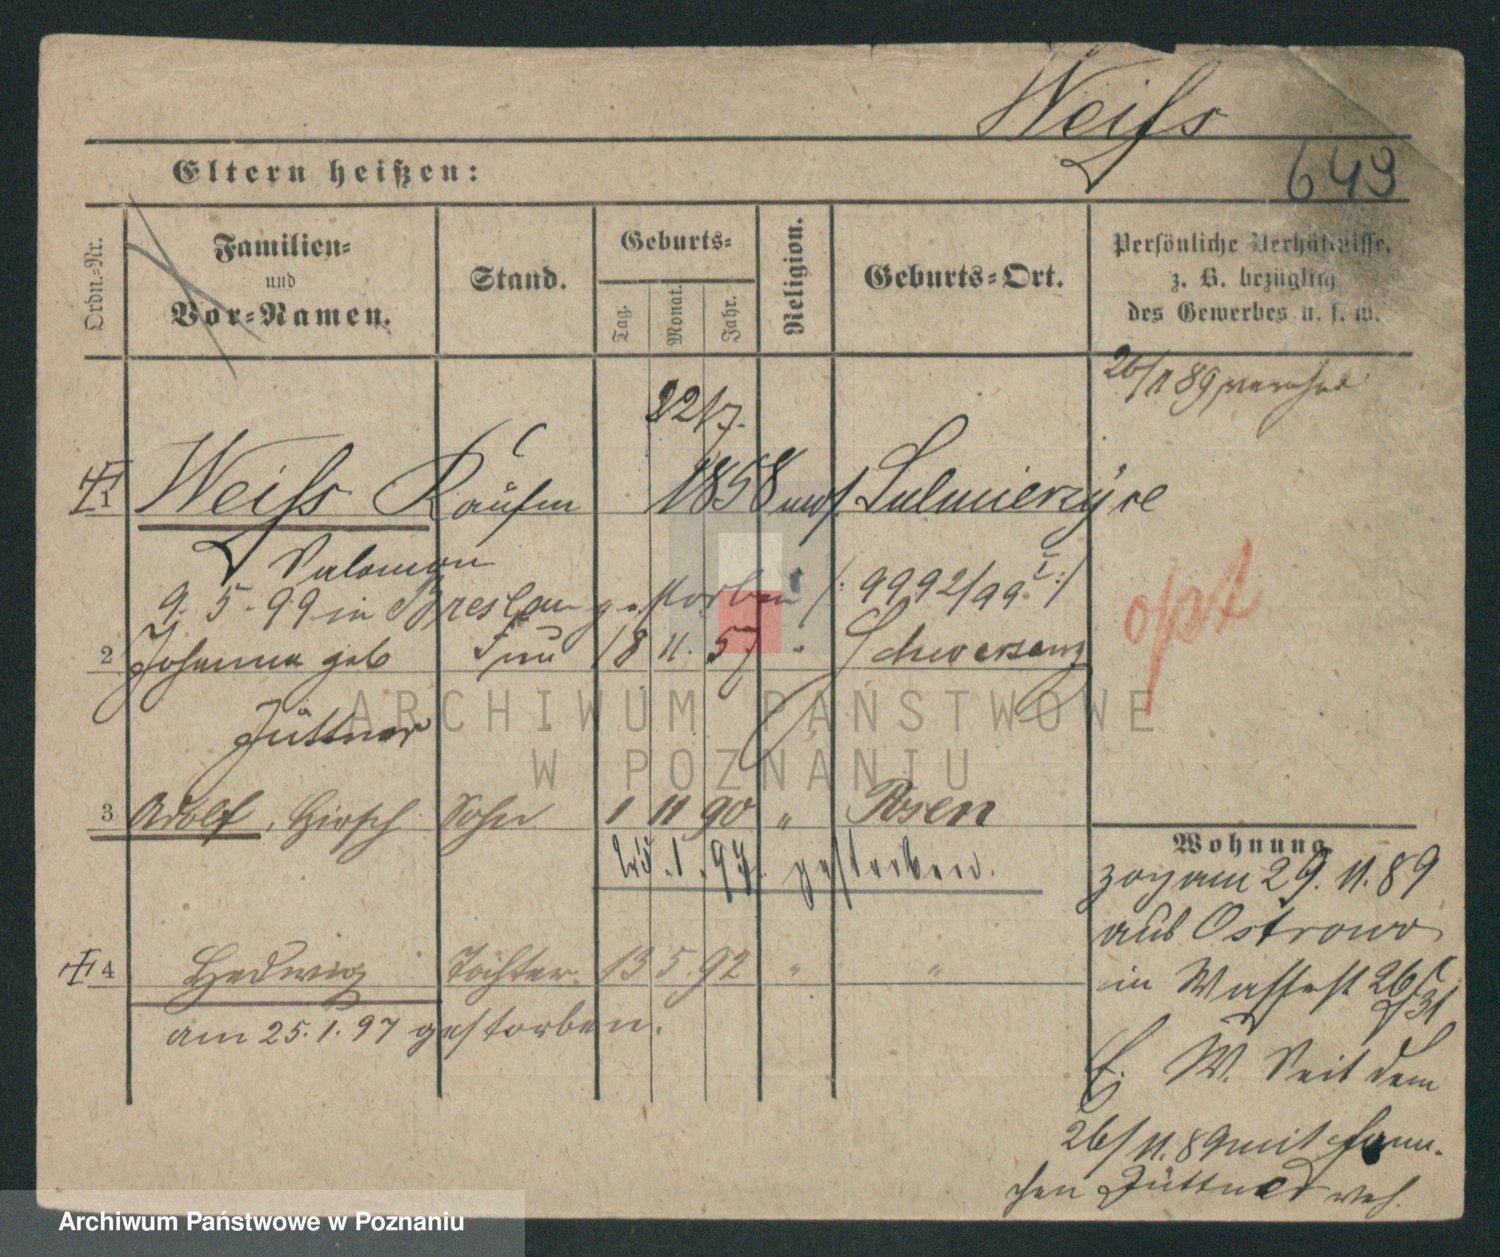 Weiss
649
Eltern heißen:
Ordn.-Nr.
Familien-
und
Vor-Namen.
Stand.
Geburts-
Tag.
Monat.
Jahr.
Religion.
Geburts-Ort.
Persönliche Verhältnisse,
z. B. bezüglich
des Gewerbes u. s. w.
26/11 89
22/7.
1 Weiss Kaufm 1858 mos. Sulmierzyce
Salomon
9. 5. 99 in Breslau gestorben /: 9992/99 I :/
2 Johanna geb Frau 18 11. 57 " Schwersenz
Jüttner
3 Adolf, Hirsch Sohn 1 11 90 " Posen
25. 1. 97. gestorben.
4 Hedwig Tochter 13 5. 92 " "
am 25. 1. 97 gestorben.
opt
Wohnung.
zog am 29. 11. 89
aus Ostrowo
in 26
31
E. W. Seit dem
26/11. 89 mit
Jüttner
ARCHIWUM PAŃSTWOWE
W POZNANIU
Archiwum Państwowe w Poznaniu